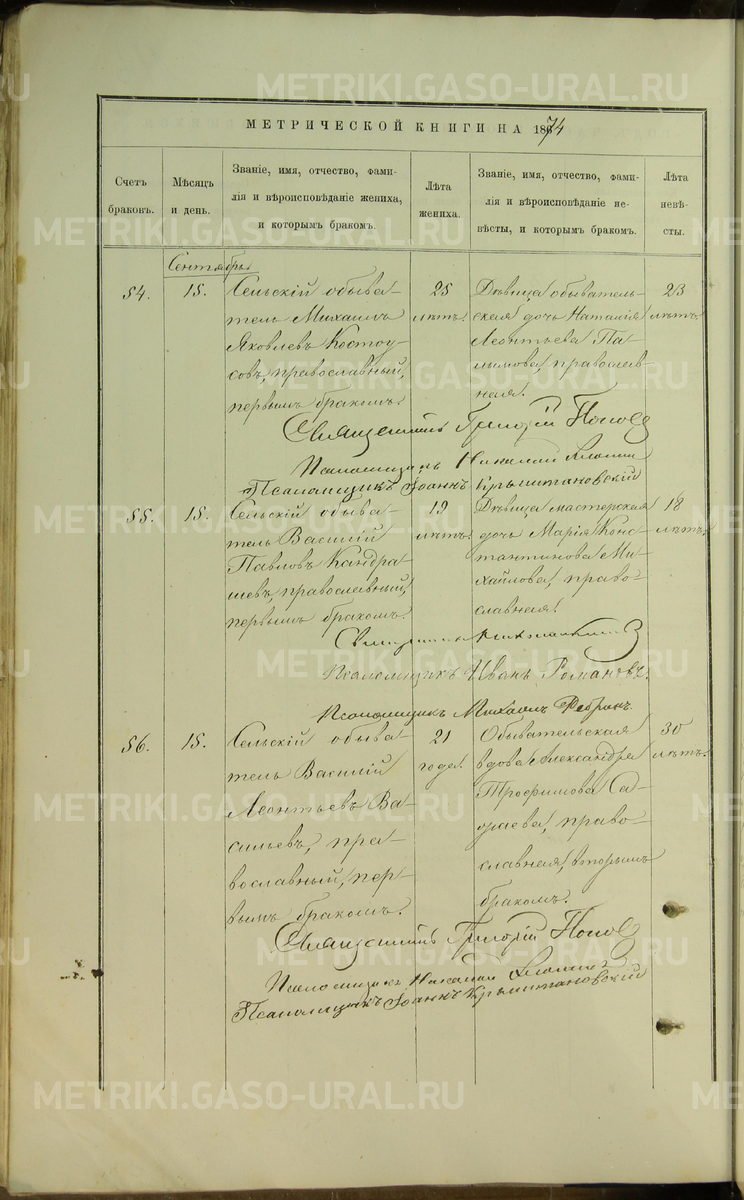 МЕТРИЧЕСКОЙ КНИГИ НА 1874
Счетъ браковъ.
Мѣсяцъ и день.
Званіе, имя, отчество, фами-
лія и вѣроисповѣданіе жениха,
и которымъ бракомъ.
Лѣта жениха.
Званіе, имя, отчество, фами-
лія и вѣроисповѣданіе не-
вѣсты, и которымъ бракомъ.
Лѣта невѣ-
сты.
Сентябрь
54.
15.
Сельскій обыва-
тель Михаилъ
Яковлевъ Костоу-
совъ, православный,
первымъ бракомъ.
25
лѣтъ.
Дѣвица обыватель-
ская дочь Наталія
Леонтьева Па-
лымова, православ-
ная.
23
лѣтъ.
Священникъ Григорій Поповъ
Псаломщикъ Николай
Псаломщикъ Іоаннъ
55.
15.
Сельскій обыва-
тель Василій
Павловъ Кандра-
шевъ, православный,
первымъ бракомъ.
19
лѣтъ.
Дѣвица мастерская
дочь Марія Конс-
тантинова Ми-
хайлова, право-
славная.
18
лѣтъ.
Священникъ
Псаломщикъ Иванъ Романовъ.
Псаломщикъ Михаилъ
56.
15.
Сельскій обыва-
тель Василій
Леонтьевъ Ва-
сильевъ, пра-
вославный, пер-
вымъ бракомъ.
21
года.
Обывательская
вдова Александра
Трофимова
право-
славная, вторымъ
бракомъ.
30
лѣтъ.
Священникъ Григорій Поповъ
Псаломщикъ Николай
Псаломщикъ Іоаннъ
METRIKI.GASO-URAL.RU